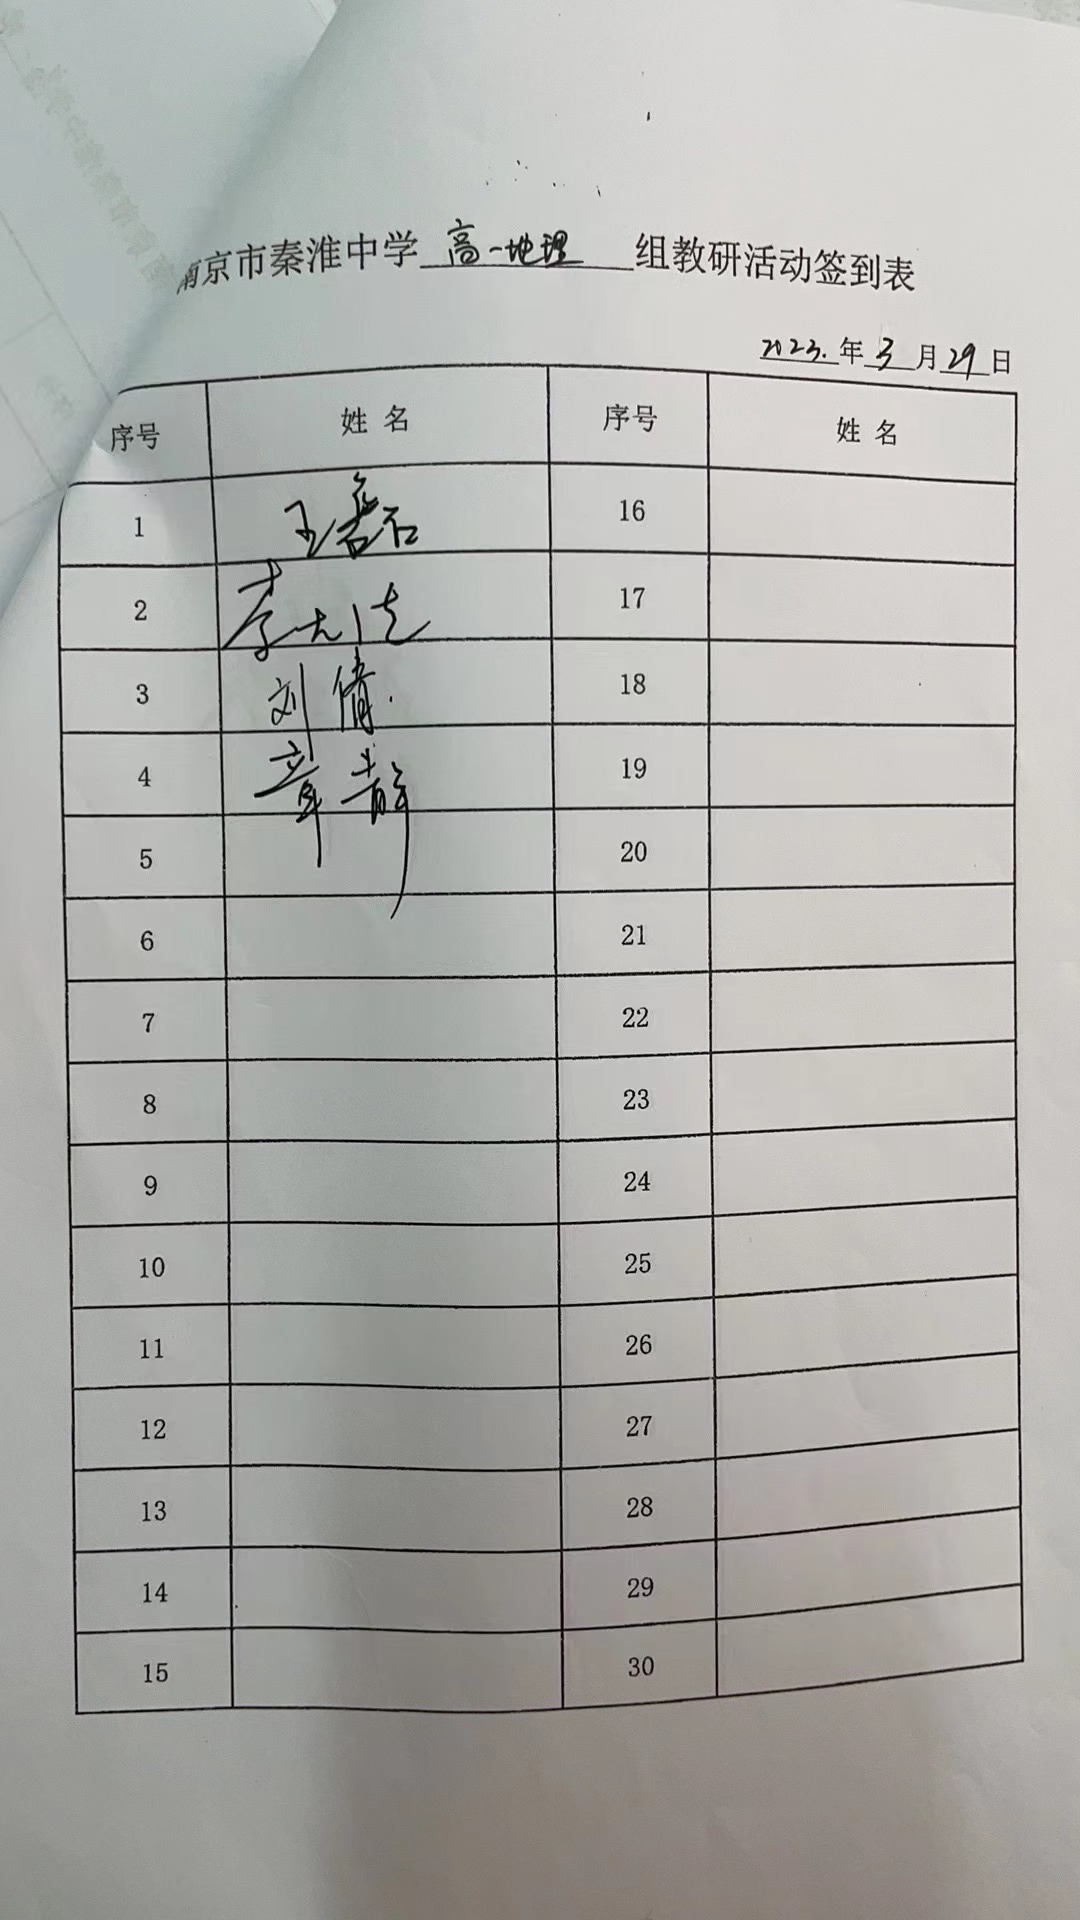 南京市秦淮中学 高一地理 组教研活动签到表
2023. 年 3 月 29 日
序号 姓名 序号 姓名
1 王磊 16
2 李 17
3 刘倩 18
4 章静 19
5 20
6 21
7 22
8 23
9 24
10 25
11 26
12 27
13 28
14 29
15 30